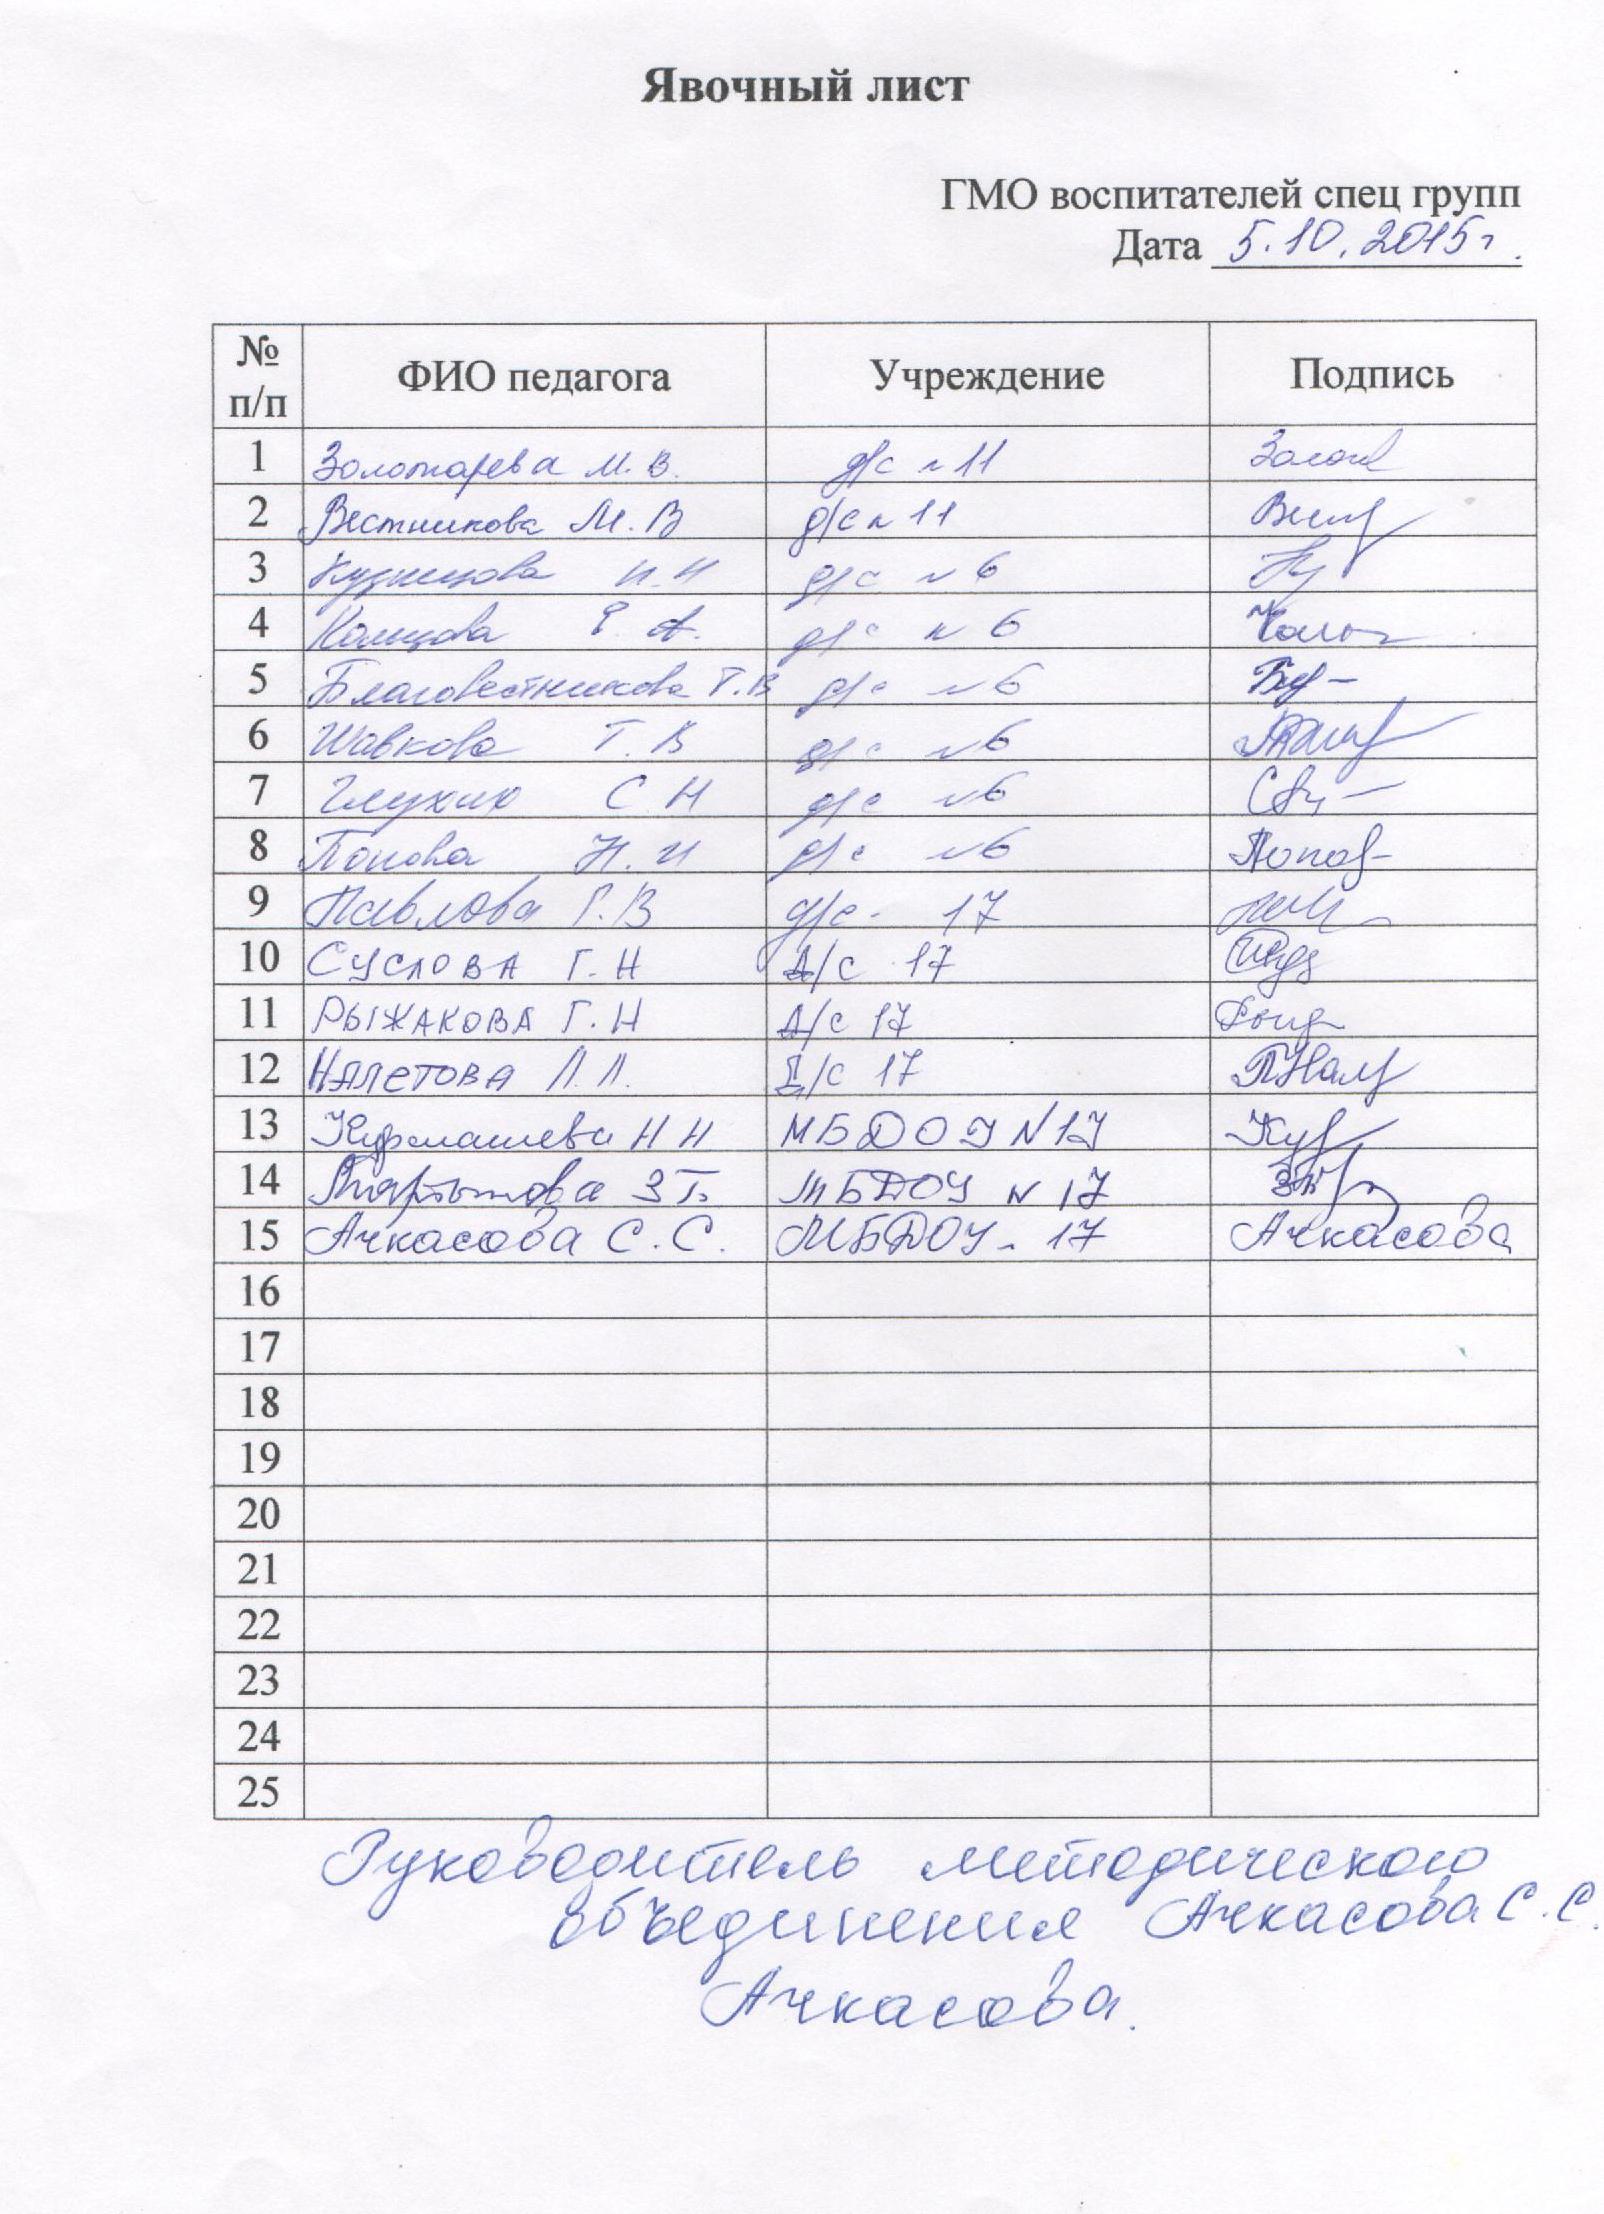 Явочный лист
ГМО воспитателей спец групп
Дата 5.10.2015г.
№ п/п ФИО педагога Учреждение Подпись
1 Золотарева М. В. д/с н 11 Золот
2 Вестникова М. В д/с н 11
3 Кузнецова Н. Н д/с н 6
4 Кольцова Е. А. д/с н 6
5 Благовестникова Т. В д/с н 6
6 Шавкова Т. В д/с н 6
7 Глухих С. Н д/с н 6
8 Попова Н. И д/с н 6 Попов
9 Павлова Г. В д/с - 17
10 СУСЛОВА Г. Н Д/С 17
11 РЫЖАКОВА Г. Н Д/С 17
12 НАЛЕТОВА Л. Л. Д/С 17
13 Курмашева Н Н МБДОУ N 17
14 Мартынова З Г. МБДОУ N 17
15 Ачкасова С. С. МБДОУ - 17 Ачкасова
16
17
18
19
20
21
22
23
24
25
Руководитель методического
объединения Ачкасова С. С.
Ачкасова.